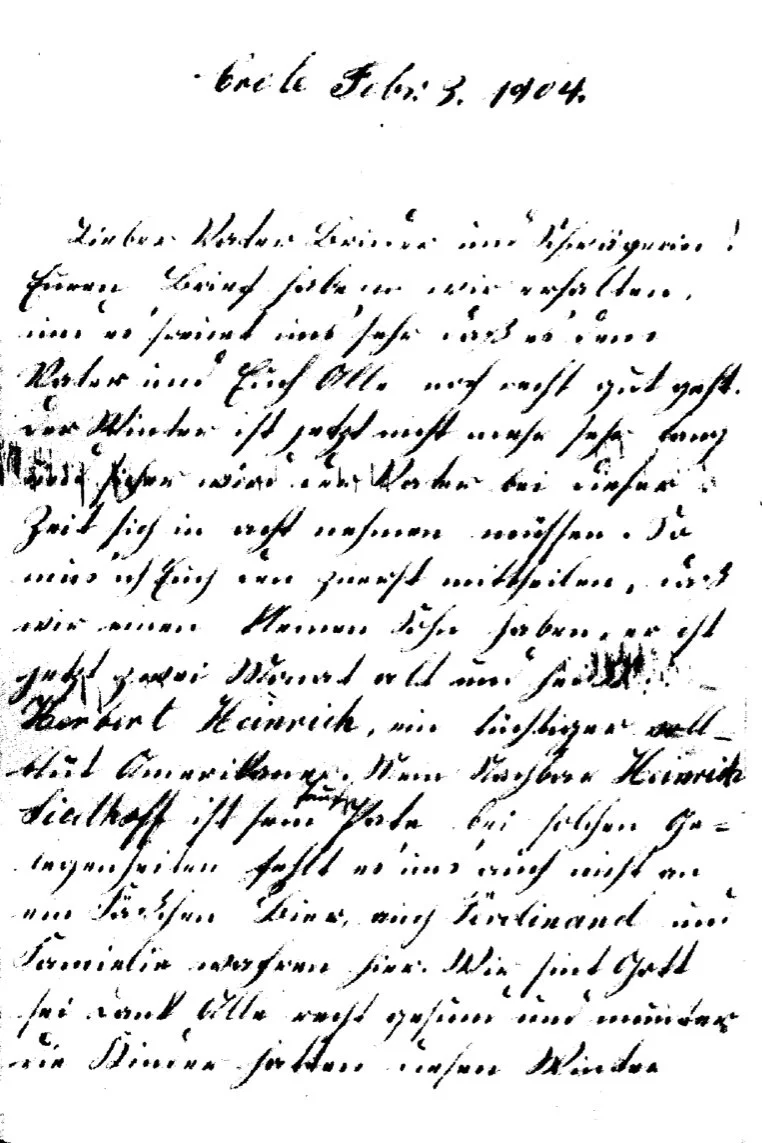 Crete Febr. 3. 1904.
Lieber Vater Bruder und Schwägerin!
Euren Brief haben wir erhalten,
und es freut uns sehr daß es dem
Vater und Euch Alle noch recht gut geht.
Der Winter ist jetzt nicht mehr sehr lang
und sicher wird der Vater bei dieser
Zeit sich in acht nehmen müssen. So
mus ich Euch den zuerst mittheilen, daß
wir einen kleinen Sohn haben, er ist
jetzt zwei Monat alt und heißt
Herbert Heinrich, ein tüchtiger voll-
blut Amerikaner. Mein Nachbar Heinrich
ist sein Tauf Pate bei solchen Ge-
legenheiten fehlt es uns auch nicht an
ein Fäschen Bier, auch Ferdinand und
Familie wahren hier. Wir sint Gott
sei Dank Alle recht gesund und munter
die Kinder hatten diesen Winter